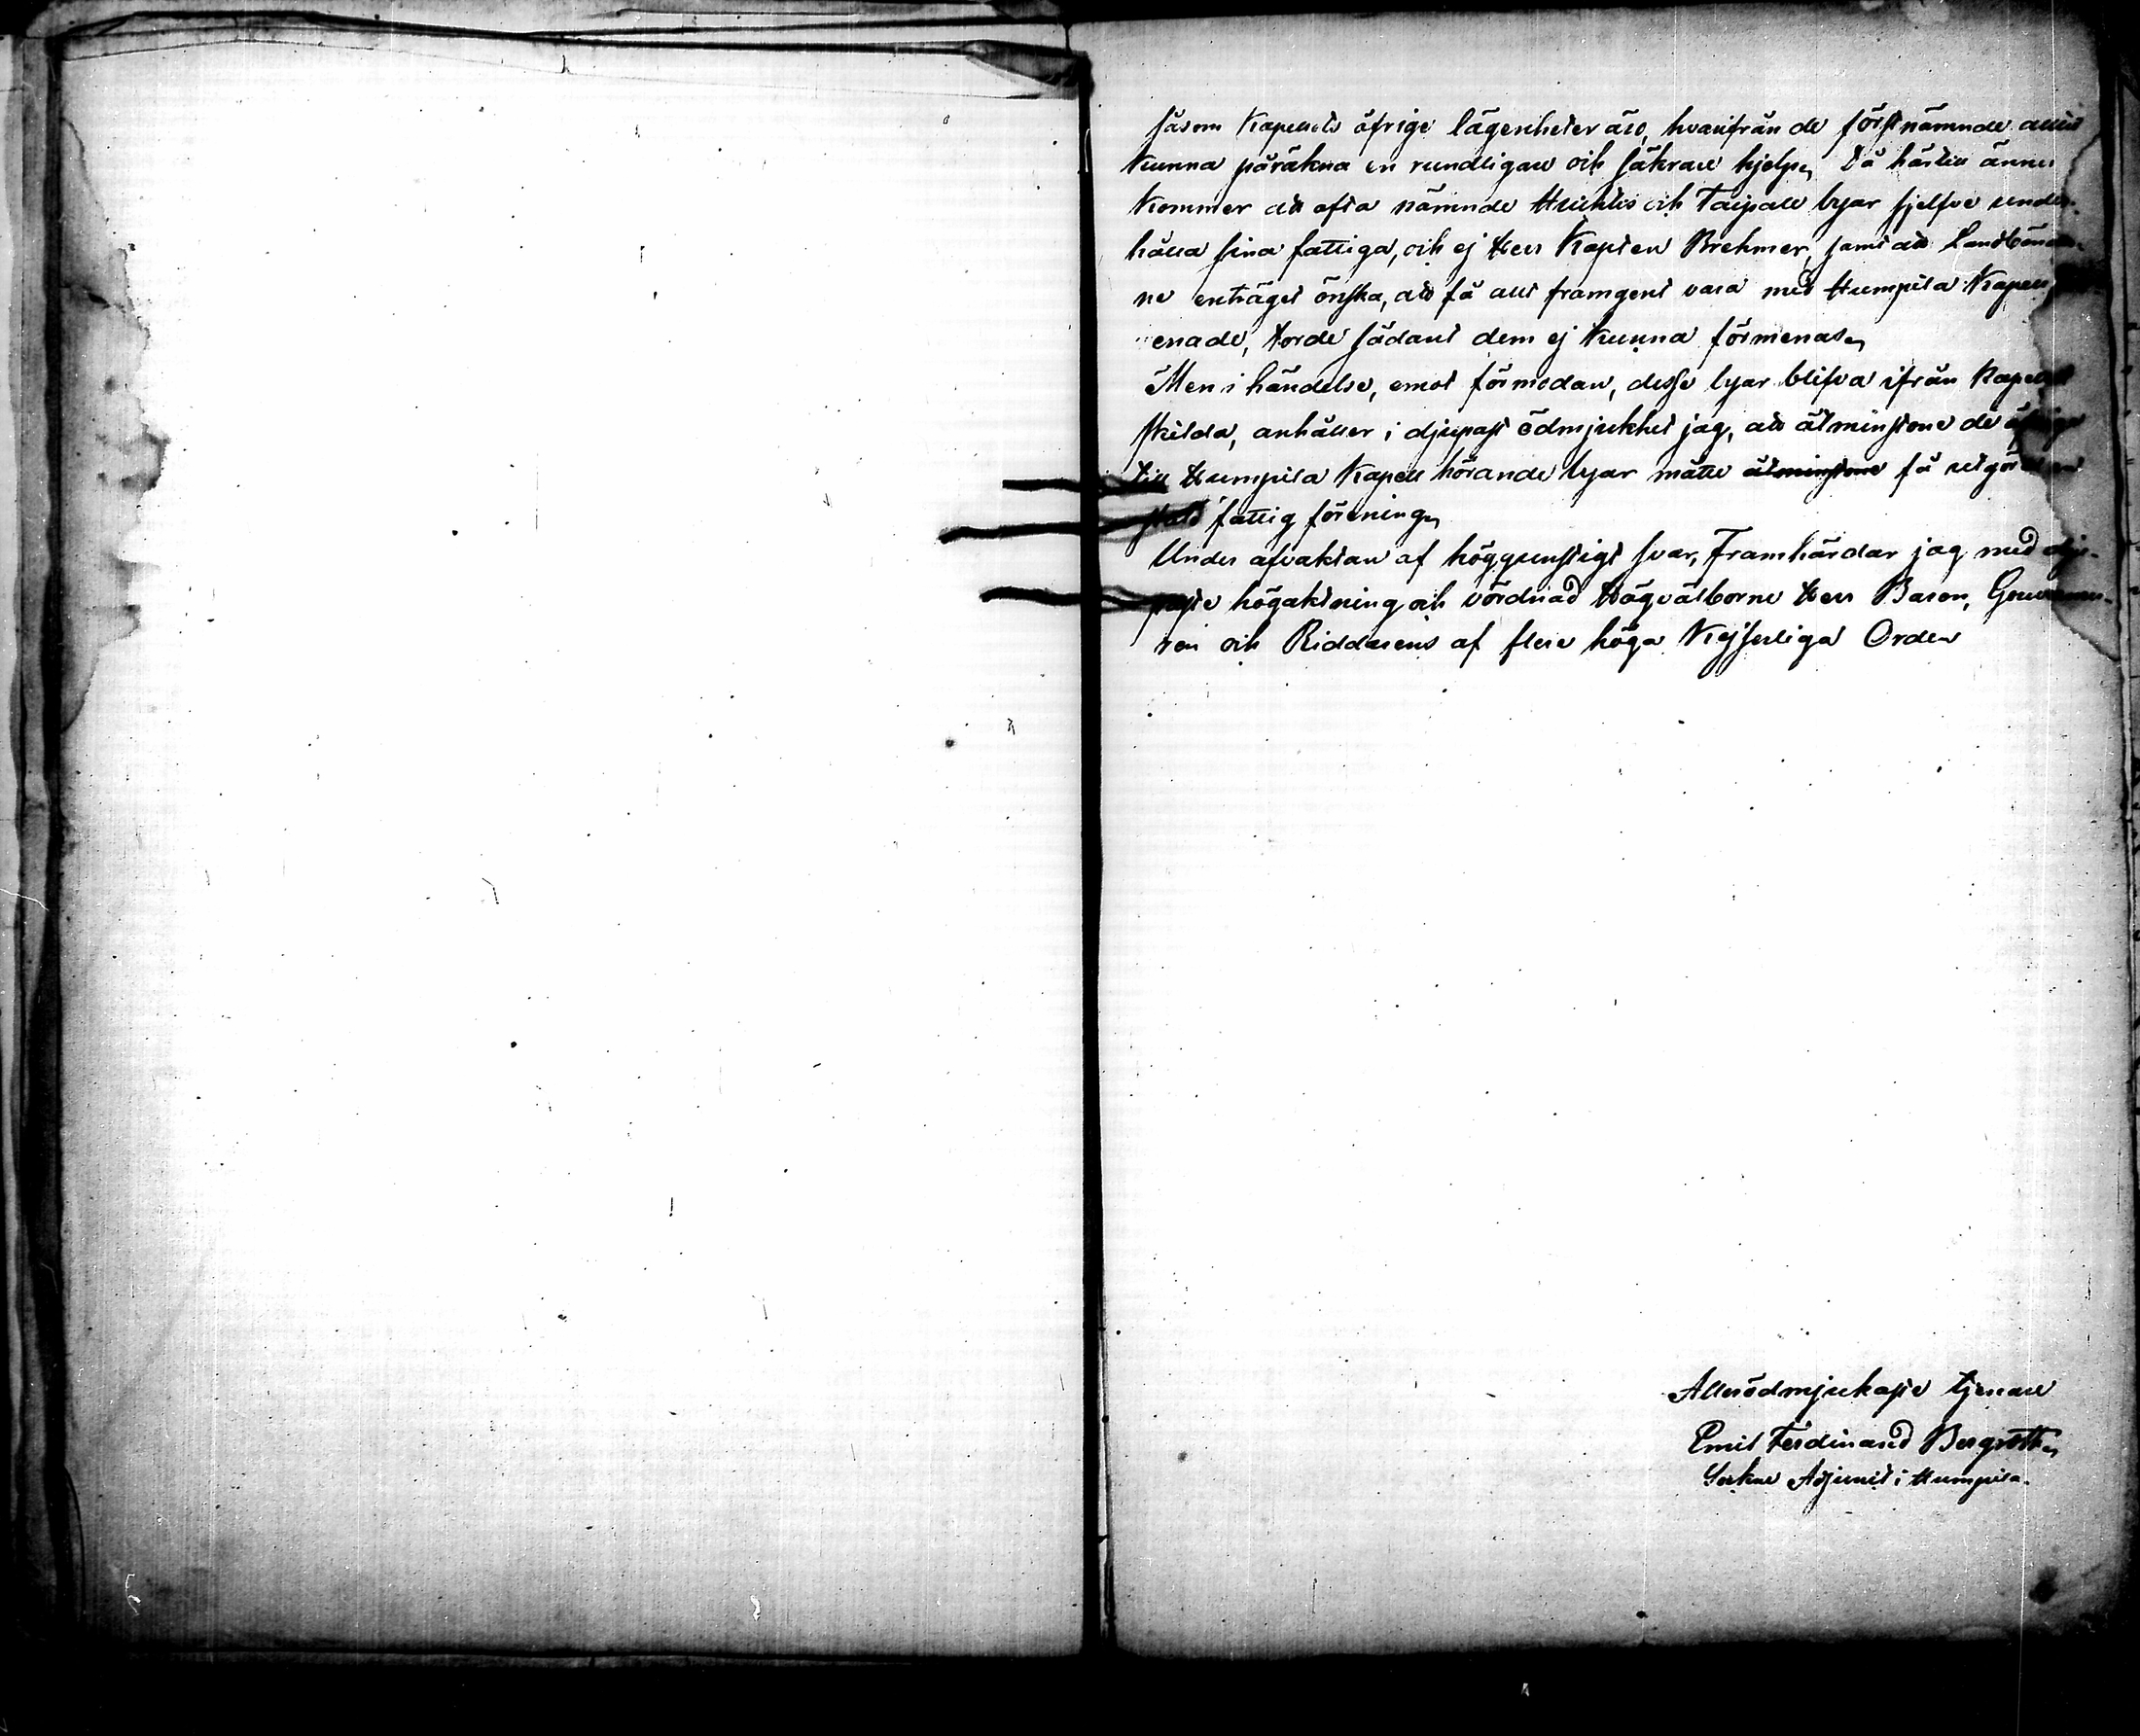 såsom Kapellets öfrige lägenheter äro, hvarifrån de förstnämnde alltid
kunna påräkna en rundligare och säkrare hjelp. Då härtill ännu
kommer att ofta nämnde Huhtis och Taipale byar sjelfve under-
hålla sina fattiga, och ej Herr Kapten Brehmer, samt att Landbönder-
ne enträget önska, att få allt framgent vara med Humpila Kapell
enade, torde sådant dem ej kunna förmenas.
Men i händelse, emot förmodan, desse byar blifva ifrån Kapellet
skilda, anhåller i djupast ödmjukhet jag, att åtminstone de öfrige
till Humpila Kapell hörande byar måtte åtminstone få utgöra en
fattig förening.
Under afvaktan af höggunstigt svar, Framhärdar jag med dju-
paste högaktning och vördnad Högvälborne Herr Baron, Gouverneu-
ren och Riddarens af flere höga Kejserliga Orden
Allerödmjukaste tjenare
Emil Ferdinand Bergroth.
Sockne Adjunct i Humpila.